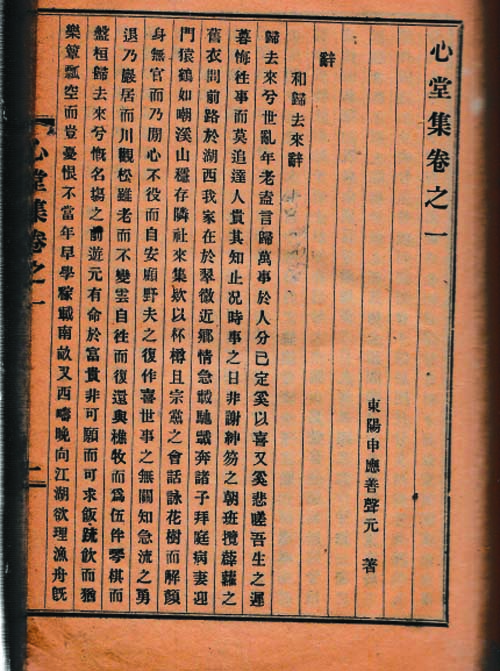 心堂集卷之一
東陽申應善聲元 著
辭
和歸去來辭
歸去來兮世亂年老盍言歸萬事於人分已定奚以喜又奚悲嗟吾生之遲
暮悔往事而莫追達人貴其知止况時事之日非謝紳笏之朝班攬薜蘿之
舊衣問前路於湖西我家在於翠微近鄕情急載馳載奔諸子拜庭病妻迎
門猿鶴如嘲溪山穩存隣社來集歡以杯樽且宗黨之會話詠花樹而解顏
身無官而乃閒心不役而自安顧野夫之復作喜世事之無關知急流之勇
退乃巖居而川觀松雖老而不變雲自往而復還與樵牧而爲伍伴琴棋而
盤桓歸去來兮慨名塲之前遊元有命於富貴非可願而可求飯蔬飮而猶
樂簞瓢空而豈憂恨不當年早學稼載南畝又西疇晚向江湖欲理漁舟旣
心堂集卷之一
二